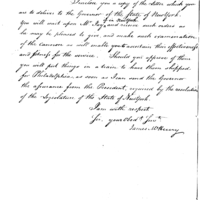 Inclosed you a copy of the letter which you
are to deliver to the Governor of the State of NewYork.
in NewYork
You will wait upon Mr Jay, and receive such orders as
he may be pleased to give, and make such examination
of the Cannon as will enable you to ascertain their effectiveness
and fitness for the service. Should you approve of them
you will put things in a train to have them shipped
for Philadelphia, as soon as I can send the Governor
the assurance from the President, required by the resolution
of the Legislature of the State of NewYork.
I am with respect
Sir, your Obed. Servt.
James McHenry